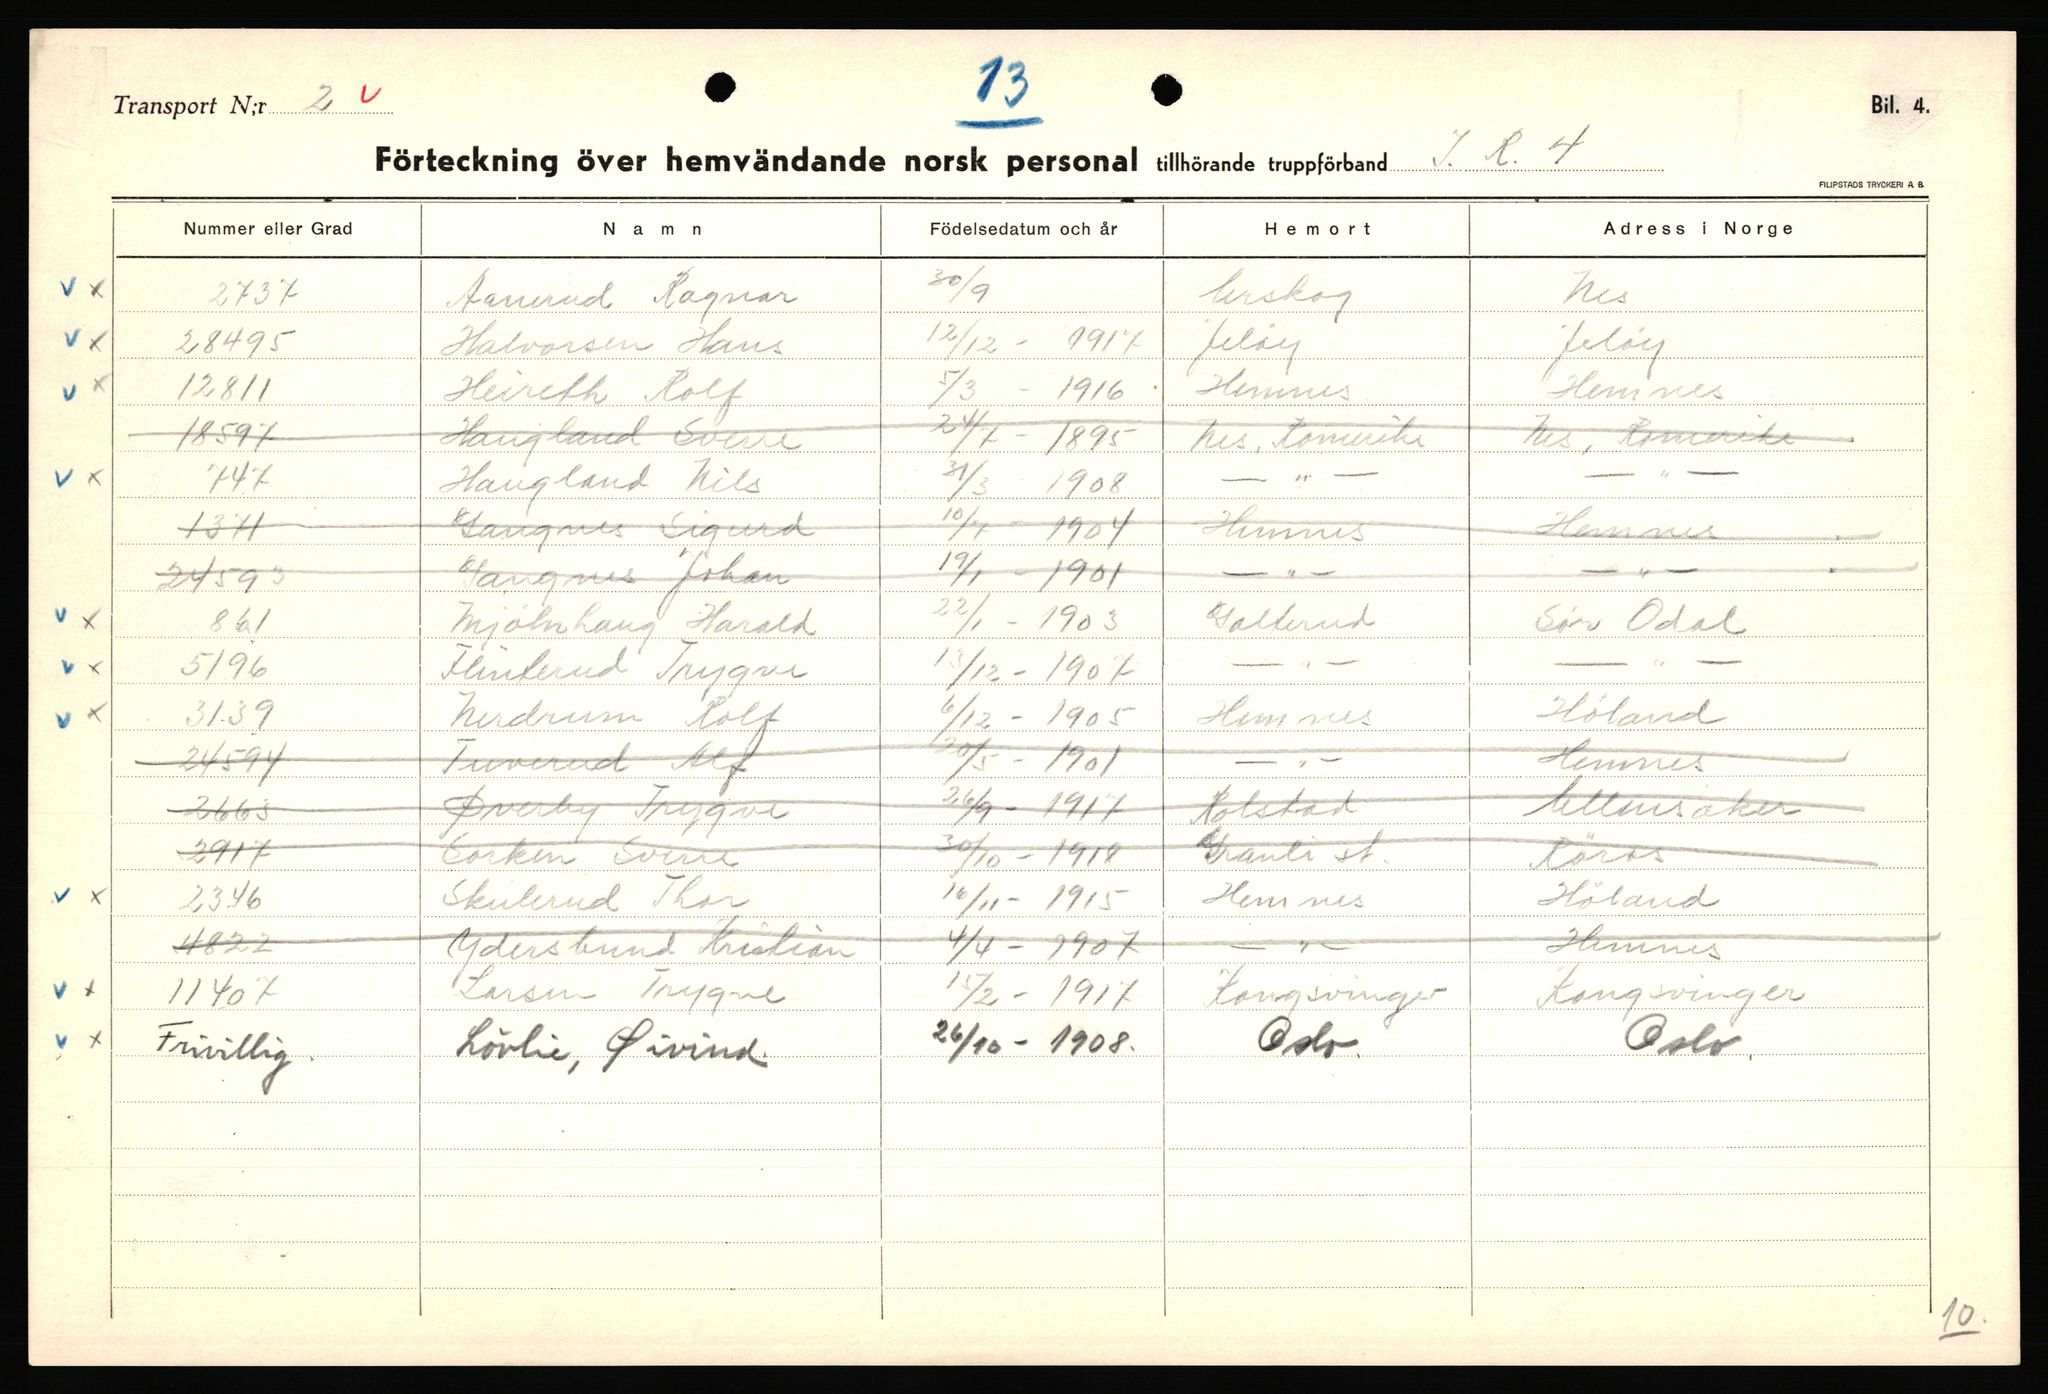 13
Transport N;r 2 v
Bil. 4.
Förteckning över hemvändande norsk personal tillhörande truppförband I. R. 4
FILIPSTADS TRYCKERI A. B.
Nummer eller Grad Namn Födelsedatum och år Hemort Adress i Norge
v x 2737 Aanerud Ragnar 30/9 Urskog Nes
v x 28495 Halvorsen Hans 12/12 - 1917 Jelöy Jelöy
v x 12811 Heireth Rolf 5/3 - 1916 Hemnes Hemnes
18597 Haugland Sverre 24/7 - 1895 Nes, Romerike Nes, Romerike
v x 747 Haugland Nils 31/3 1908 — " — — " —
1371 Gangnes Sigurd 10/7 - 1904 Hemnes Hemnes
24593 Gangnes Johan 19/1 - 1901 — " — — " —
v x 861 Mjölnhaug Harald 22/1 - 1903 Galterud Sör Odal
v x 5196 Flinterud Trygve 13/12 - 1907 — " — — " —
v x 3139 Nerdrum Rolf 6/12 - 1905 Hemnes Höland
24594 Tuverud Alf 20/5 - 1901 — " — Hemnes
2663 Øverby Trygve 26/9 - 1917 Rolstad Ullensaker
2917 Sorken Sverre 30/10 - 1918 st. Röros
v x 2346 Skulerud Thor 16/11 - 1915 Hemnes Höland
4822 Ydersbund Kristian 4/4 - 1907 — " — Hemnes
v x 11407 Larsen Trygve 15/2 - 1917 Kongsvinger Kongsvinger
v x Frivillig. Lövlie, Øivind. 26/10 - 1908. Oslo. Oslo.
10.